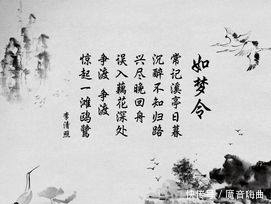 如梦令
常记溪亭日暮
沉醉不知归路
兴尽晚回舟
误入藕花深处
争渡 争渡
惊起一滩鸥鹭
李清照
快传号/魔音嗨曲